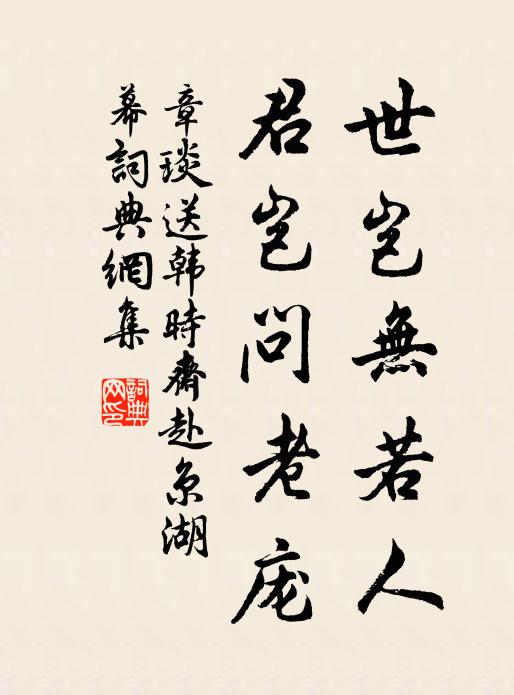 世岂無若人
君岂問老庞
章琰送韩時齋赴京湖
幕詞典網集
詞典
网印